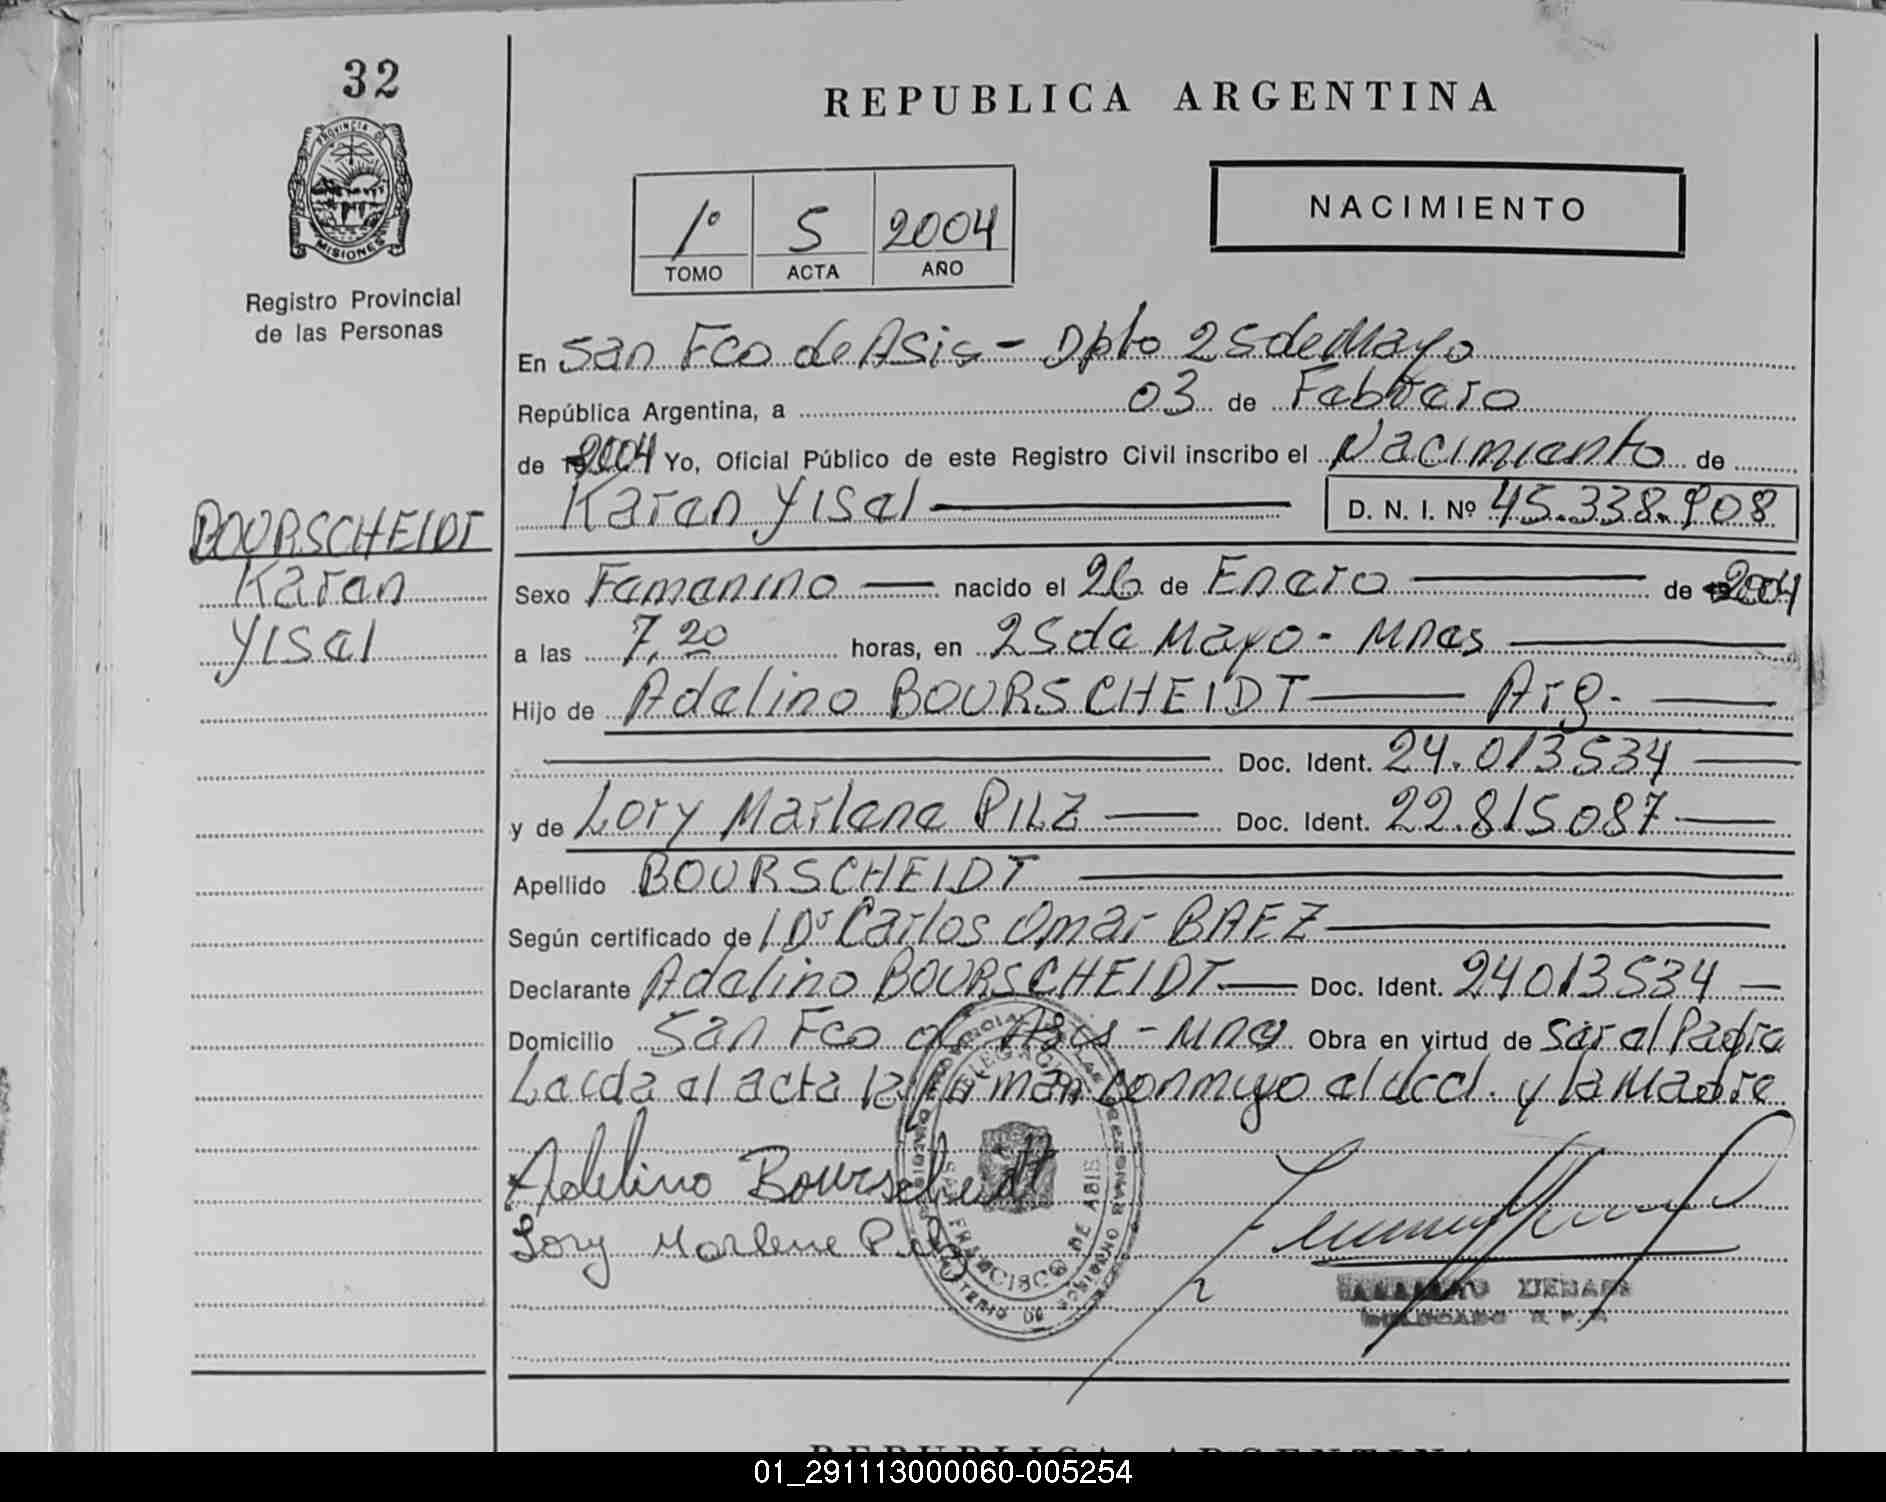 32
PROVINCIA DE
MISIONES
Registro Provincial
de las Personas
REPUBLICA ARGENTINA
1º 5 2004
TOMO ACTA AÑO
NACIMIENTO
En San Fco de Asis - Dpto 25 de Mayo
República Argentina, a 03 de Febrero
de 2004 Yo, Oficial Público de este Registro Civil inscribo el Nacimiento de
Karen Yisel D. N. I. Nº 45.338.908
BOURSCHEIDT
Karen
Yisel
Sexo Femenino nacido el 26 de Enero de 2004
a las 7,20 horas, en 25 de Mayo - Mnes
Hijo de Adelino BOURSCHEIDT Arg.
Doc. Ident. 24.013534
y de Lory Marlene PILZ Doc. Ident. 22.815087
Apellido BOURSCHEIDT
Según certificado de l Dr Carlos Omar BAEZ
Declarante Adelino BOURSCHEIDT Doc. Ident. 24013534
Domicilio San Fco de Asis - Mnes Obra en virtud de Ser el Padre
Leida el acta la firman conmigo el decl. y la Madre
Adelino Bourscheidt
Lory Marlene Pilz
SAN FRANCISCO DE ASIS
REPUBLICA ARGENTINA
01_291113000060-005254